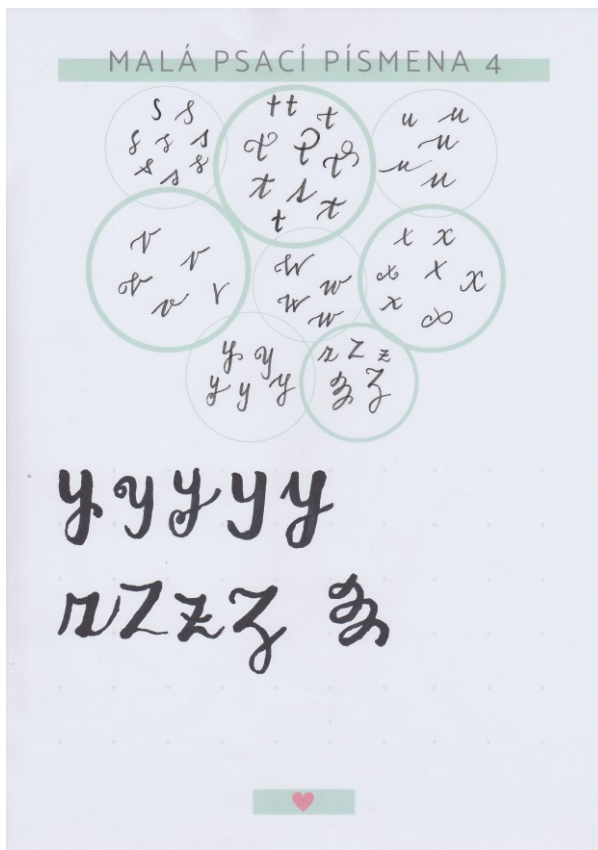 MALÁ PSACÍ PÍSMENA 4
s s
s s s
s s s
t t t
t t t
t s t
t
u u
u
u u
v v
v v v
w
w w
w
x x
x x x
x
x
y y
y y y
z z z
z z
y y y y y
z z z z z